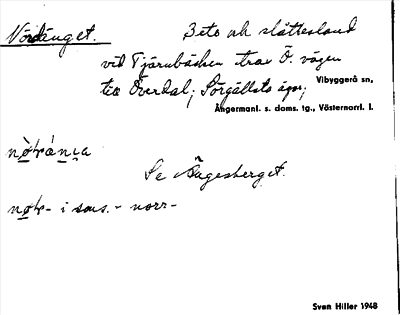 Nördänget. Bete och slåttesland
vid Tjärnbäcken trax Ö. vägen
till Överdal; Sörgällsta ägor;
Vibyggerå sn,
Ångermanl. s. doms. tg., Västernorrl. l.
Se Ängesberget.
i sms. - norr-
Sven Hiller 1948